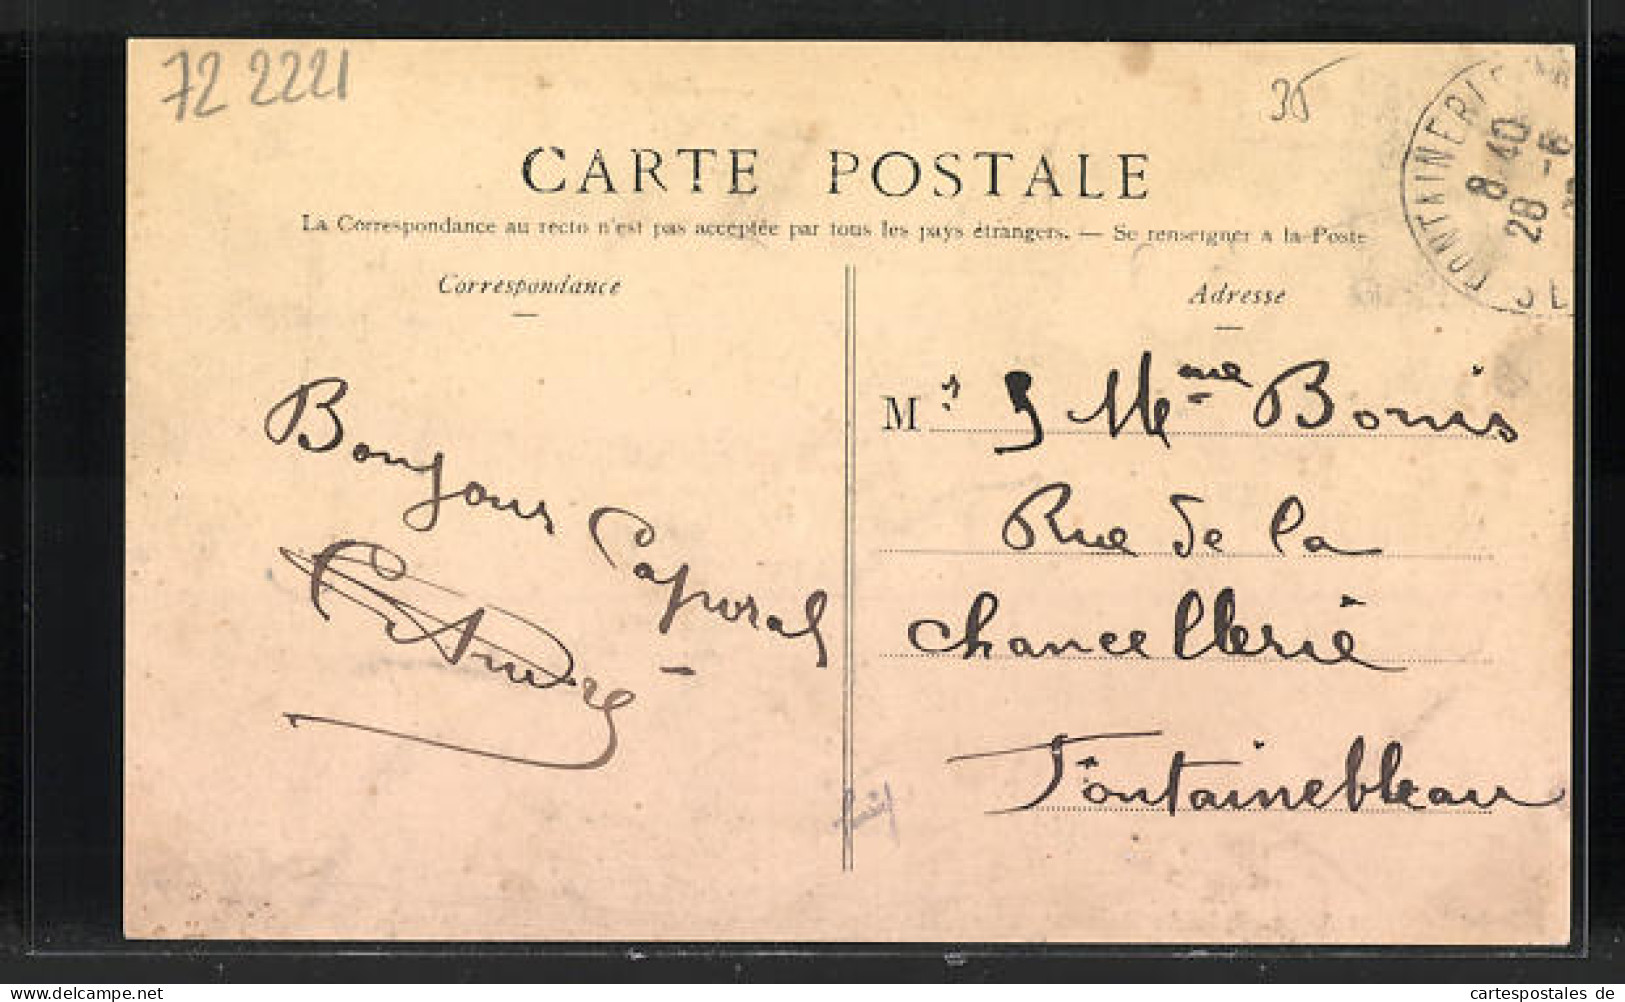 72 2221
35
CARTE POSTALE
La Correspondance au recto n'est pas acceptée par tous les pays étrangers. — Se renseigner à la Poste
Correspondance
Adresse
8 40
28 -6
M Mme Bonis
Rue de la
Chancellerie
Fontainebleau
Bonjour Caporal
cartespostales de